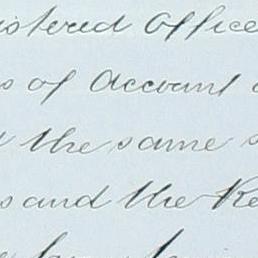 istered Office
s of Account
the same
s and the Re